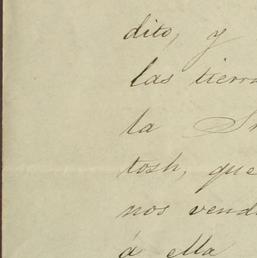 dito, y
las tierra
la Sr
tosh, que
nos vend
á ella